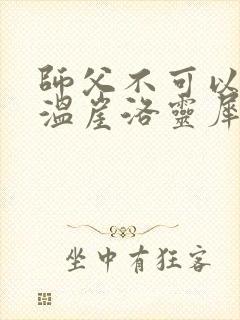 師父不可以
溫崖洛靈犀
坐中有狂客